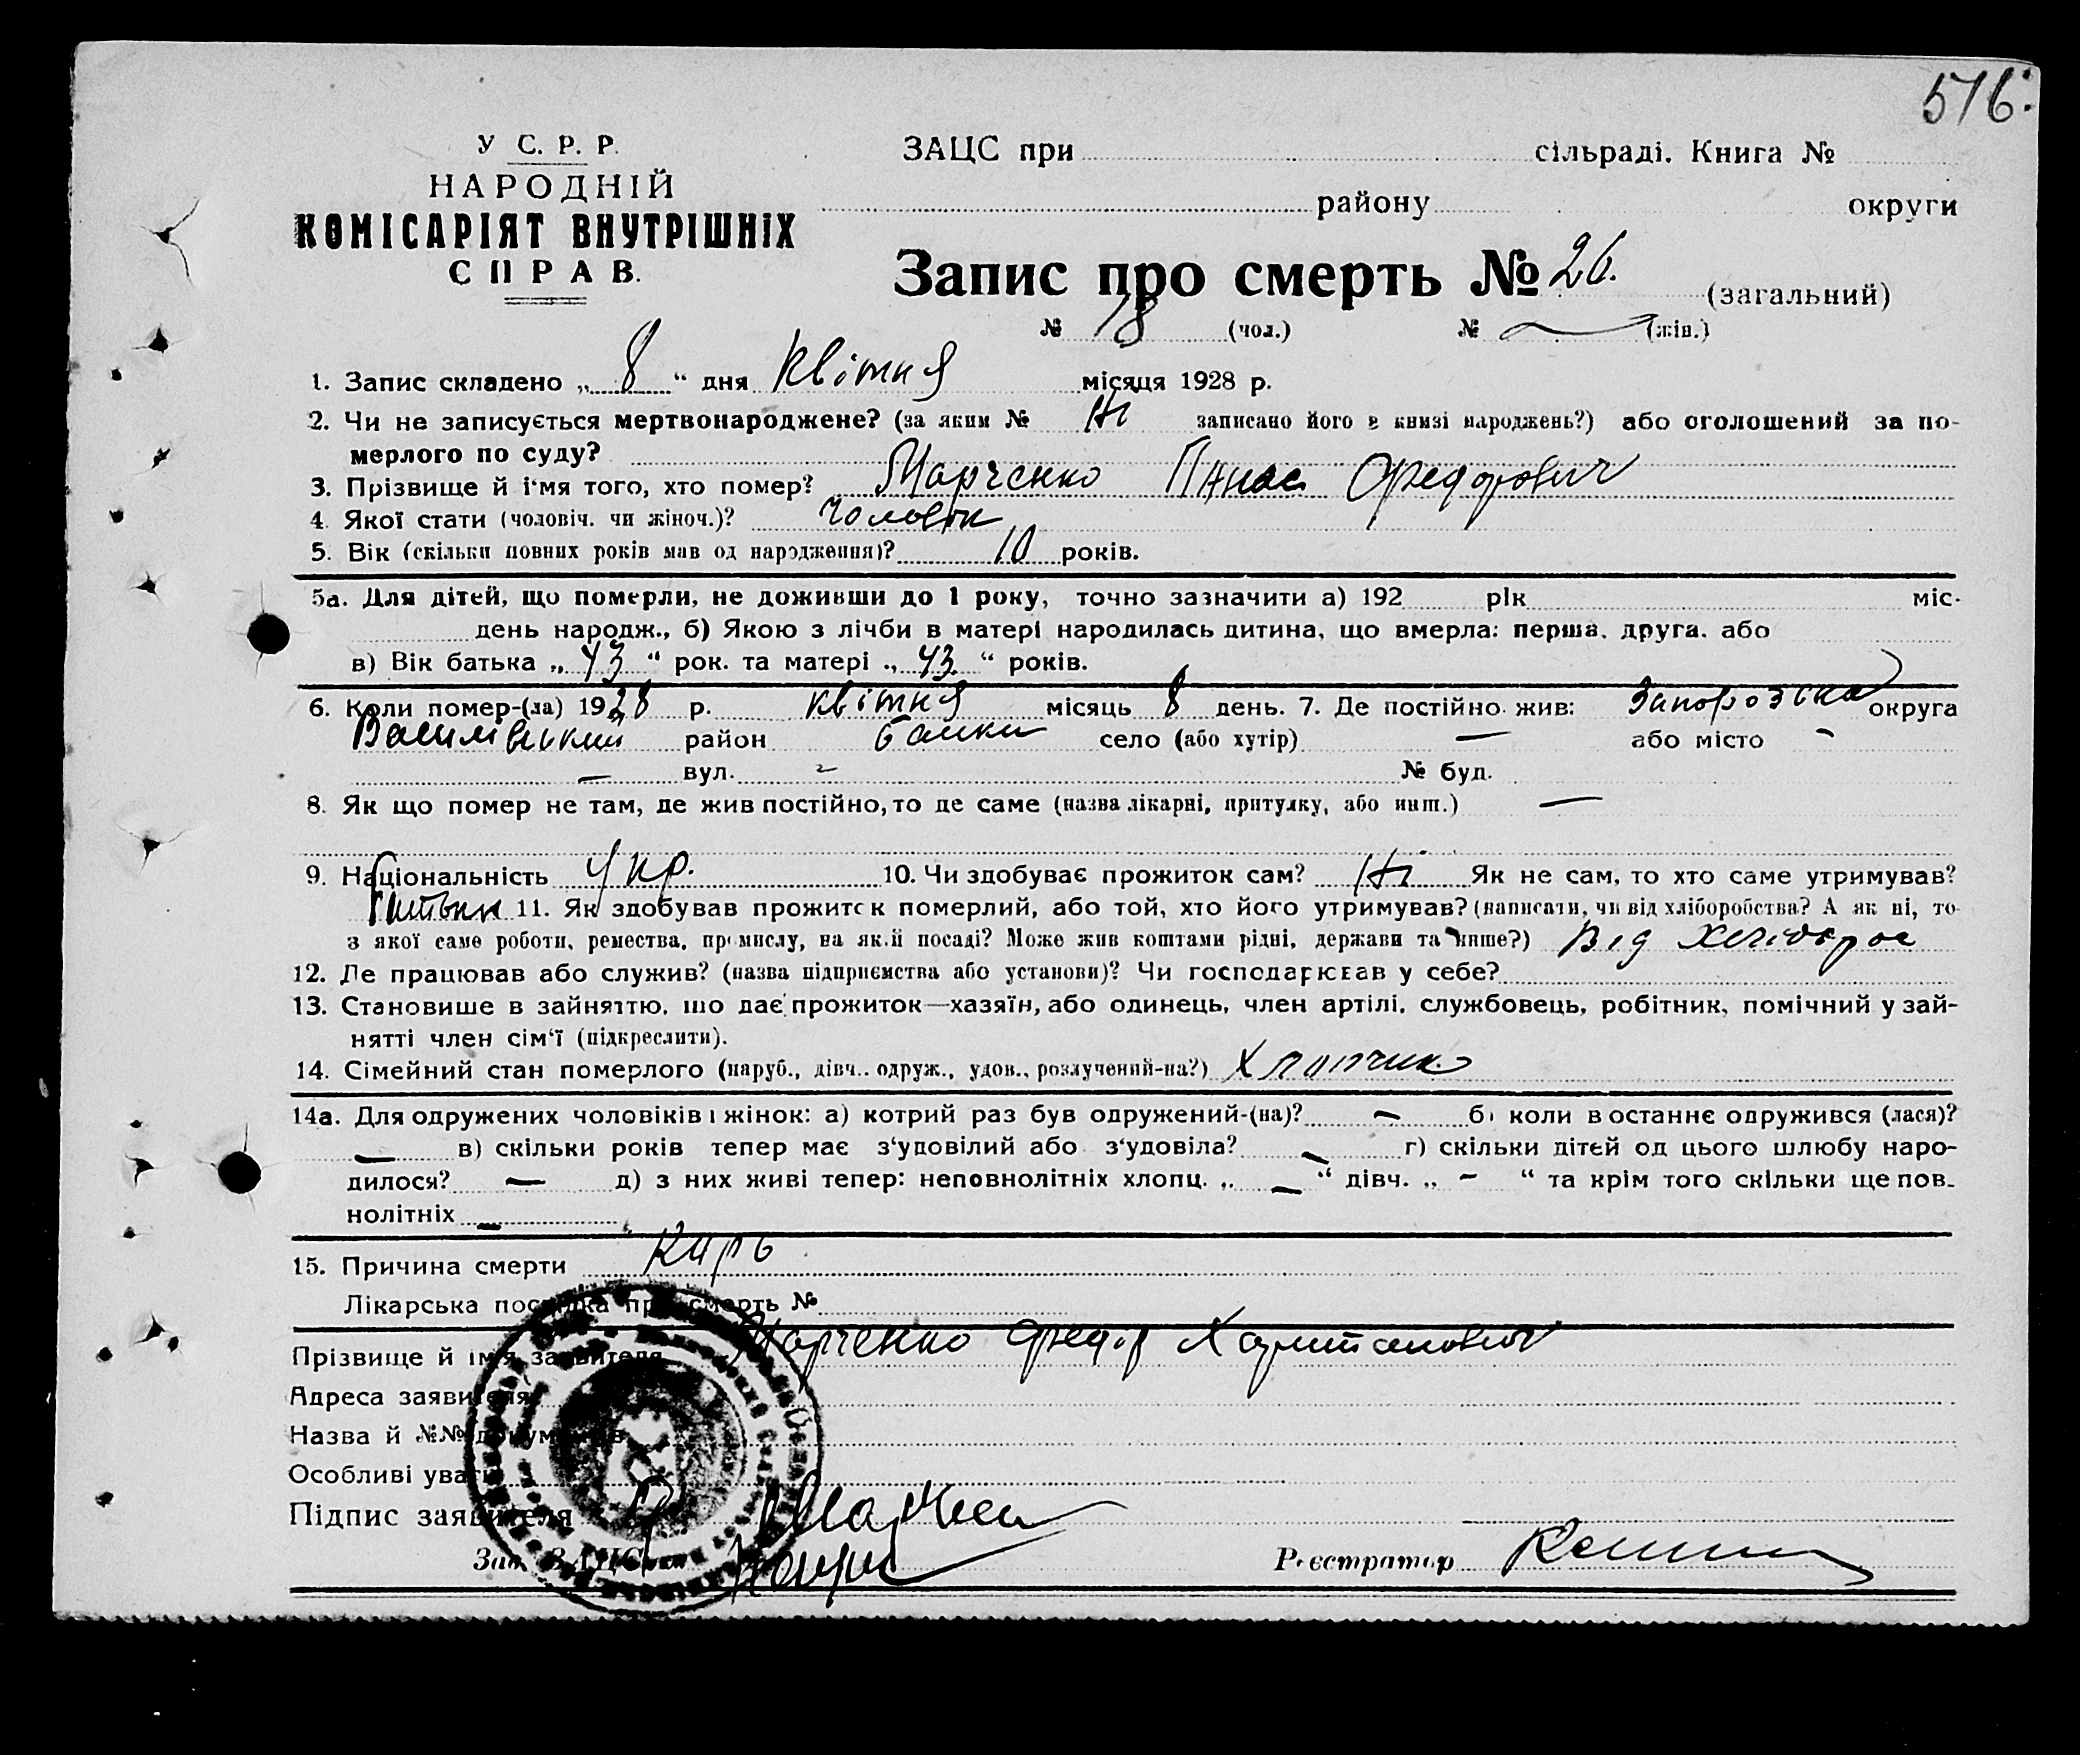 516.
У С. Р. Р.
НАРОДНІЙ
КОМІСАРІЯТ ВНУТРІШНІХ
СПРАВ.
ЗАЦС при сільраді. Книга №
району округи
Запис про смерть № 26. (загальний)
№ 18 (чол.) № — (жін.)
1. Запис складено „ 8 “ дня Квітня місяця 1928 р.
2. Чи не записується мертвонароджене? (за яким № Ні записано його в книзі народжень?) або оголошений за по-
мерлого по суду?
3. Прізвище й і'мя того, хто помер? Марченко Панас Федорович
4. Якої стати (чоловіч. чи жіноч.)? Чоловік
5. Вік (скільки повних років мав од народження)? 10 років.
5а. Для дітей, що померли, не доживши до 1 року, точно зазначити а) 192 рік міс.
день народж., б) Якою з лічби в матері народилась дитина, що вмерла: перша, друга, або
в) Вік батька „ 43 “ рок. та матері „ 43 “ років.
6. Коли помер-(ла) 1928 р. квітня місяць 8 день. 7. Де постійно жив: Запорозька округа
Василівський район Балки село (або хутір) — або місто -
— вул. - № буд.
8. Як що помер не там, де жив постійно, то де саме (назва лікарні, притулку, або инш.) —
9. Національність Укр. 10. Чи здобуває прожиток сам? Ні Як не сам, то хто саме утримував?
Батьки 11. Як здобував прожиток померлий, або той, хто його утримував? (написати, чи від хліборобства? А як ні, то
з якої саме роботи, ремества, промислу, на якій посаді? Може жив коштами рідні, держави та инше?) Від Хліборос
12. Де працював або служив? (назва підприємства або установи)? Чи господарював у себе?
13. Становише в зайняттю, що дає прожиток—хазяїн, або одинець, член артілі, службовець, робітник, помічний у зай-
нятті член сім'ї (підкреслити).
14. Сімейний стан померлого (паруб., дівч.. одруж., удов., розлучений-на?) Хлопчик
14а. Для одружених чоловіків і жінок: а) котрий раз був одружений-(на)? — б) коли в останнє одружився (лася)?
— в) скільки років тепер має з'удовілий або з'удовіла? — г) скільки дітей од цього шлюбу наро-
дилося? — д) з них живі тепер: неповнолітніх хлопц. „ — “ дівч. „ - “ та крім того скільки ще пов.
нолітніх —
15. Причина смерти Кирь
Лікарська посвідка про смерть №
Прізвище й ім'я заявителя Марченко Федор Харитонович
Адреса заявителя
Назва й №№ документів
Особливі уваги
Підпис заявителя
Зав. ЗАЦС'ом Реєстратор